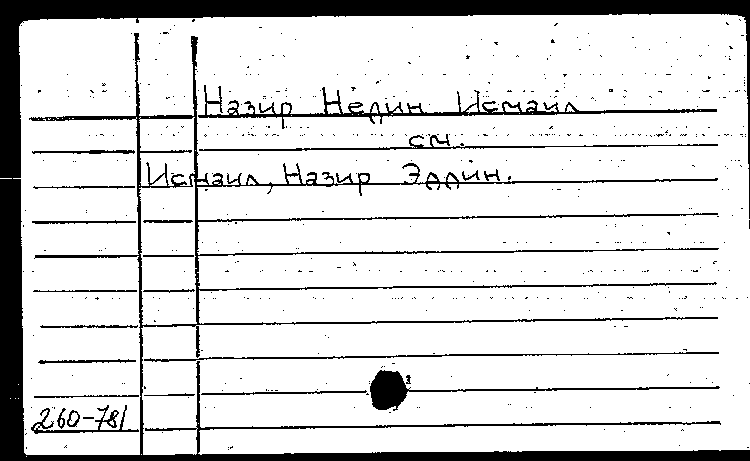 Назир Недин Исмаил
см.
Исмаил, Назир Эддин.
260-781